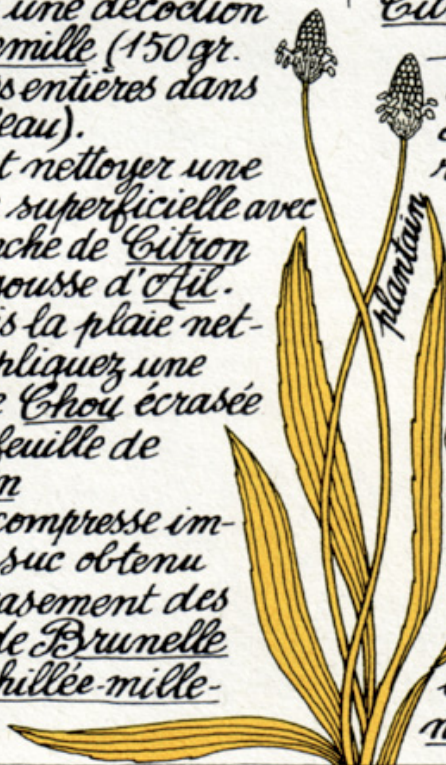 une décoction
emille (150 gr.
s entières dans
eau).
t nettoyer une
superficielle avec
nche de Citron
gousse d'Ail.
is la plaie net-
pliquez une
e Chou écrasée
feuille de
n
compresse im-
suc obtenu
asement des
de Brunelle
hillée-mille-
plantain